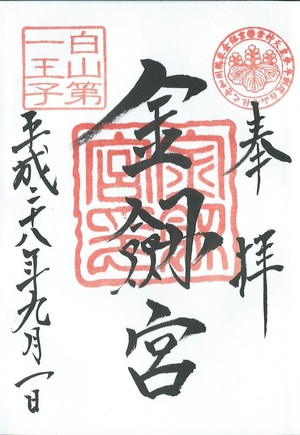 奉拝
白山第
一王子
金劔宮
平成二十八年九月一日